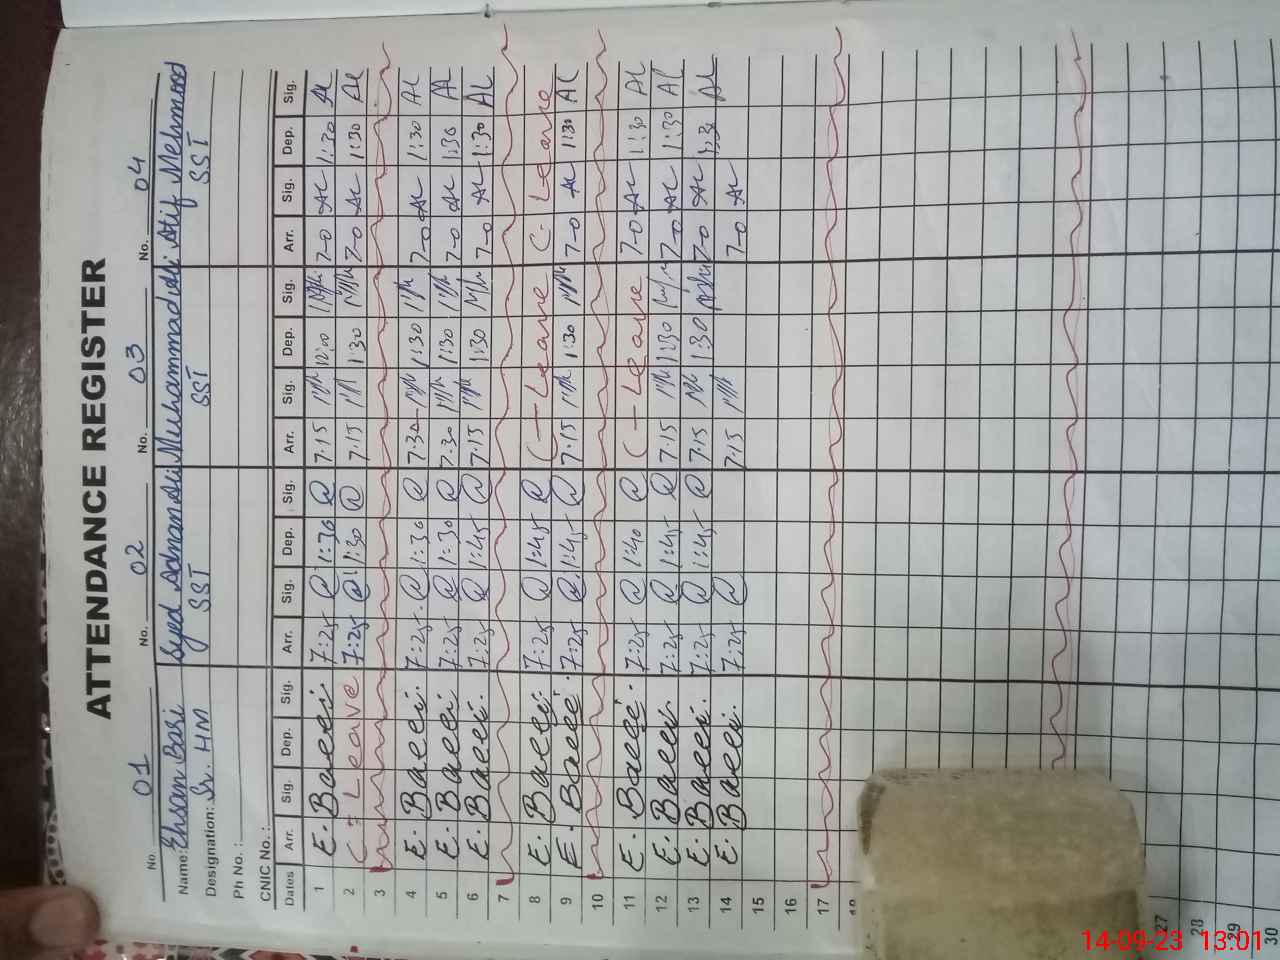 ATTENDANCE REGISTER
No. 01 No. 02 No. 03 No. 04
Name: Ehsan Bari Syed Adnan Ali Muhammad Ali Atif Mehmood
Designation: Sr. HM SST SST SST
Ph No. :
CNIC No. :
Dates Arr. Sig. Dep. Sig. Arr. Sig. Dep. Sig. Arr. Sig. Dep. Sig. Arr. Sig. Dep. Sig.
1 E. Baeei. 7:25 @ 1:30 @ 7.15 12:00 7-0 AL 1:30 AL
2 C- Leave 7:25 @ 1:30 @ 7.15 1:30 7-0 AL 1:30 AL
3
4 E. Baeei. 7:25 @ 1:30 @ 7.30 1:30 7-0 AL 1:30 AL
5 E. Baeei 7:25 @ 1:30 @ 7.30 1:30 7-0 AL 1:30 AL
6 E. Baeei. 7:25 @ 1:45 @ 7.15 1:30 7-0 AL 1:30 AL
7
8 E. Baeei. 7:25 @ 1:45 @ C-Leave C. Leave
9 E. Baeei. 7:25 @ 1:45 @ 7.15 1:30 7-0 AL 1:30 AL
10
11 E. Baeei. 7:25 @ 1:40 @ C-Leave 7-0 AL 1:30 AL
12 E. Baeei. 7:25 @ 1:45 @ 7.15 1:30 7-0 AL 1:30 AL
13 E. Baeei. 7:25 @ 1:45 @ 7.15 1:30 7-0 AL 1:30 AL
14 E. Baeei. 7:25 @ 7.15 7-0 AL
15
16
17
18
27
28
29
30
14-09-23 13:01